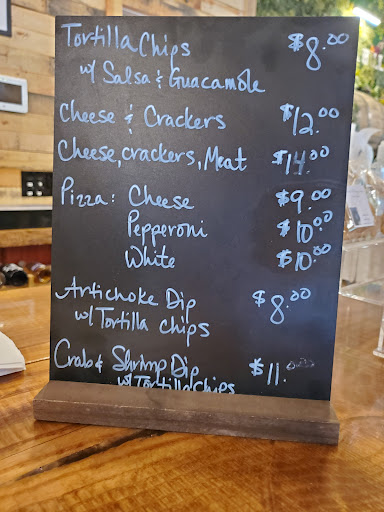 Tortilla Chips $8.00
w/ Salsa & Guacamole
Cheese & Crackers $12.00
Cheese, crackers, Meat $14.00
Pizza: Cheese $9.00
Pepperoni $10.00
White $10.00
Artichoke Dip $8.00
w/ Tortilla chips
Crab & Shrimp Dip $11.00
w/ Tortilla Chips